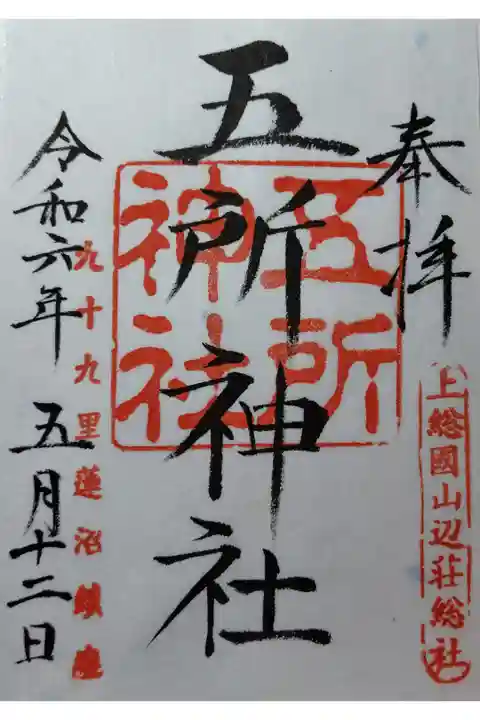 奉拝
上総國山辺荘総社
五所神社
五所神社
九十九里蓮沼鎮座
令和六年 五月十二日